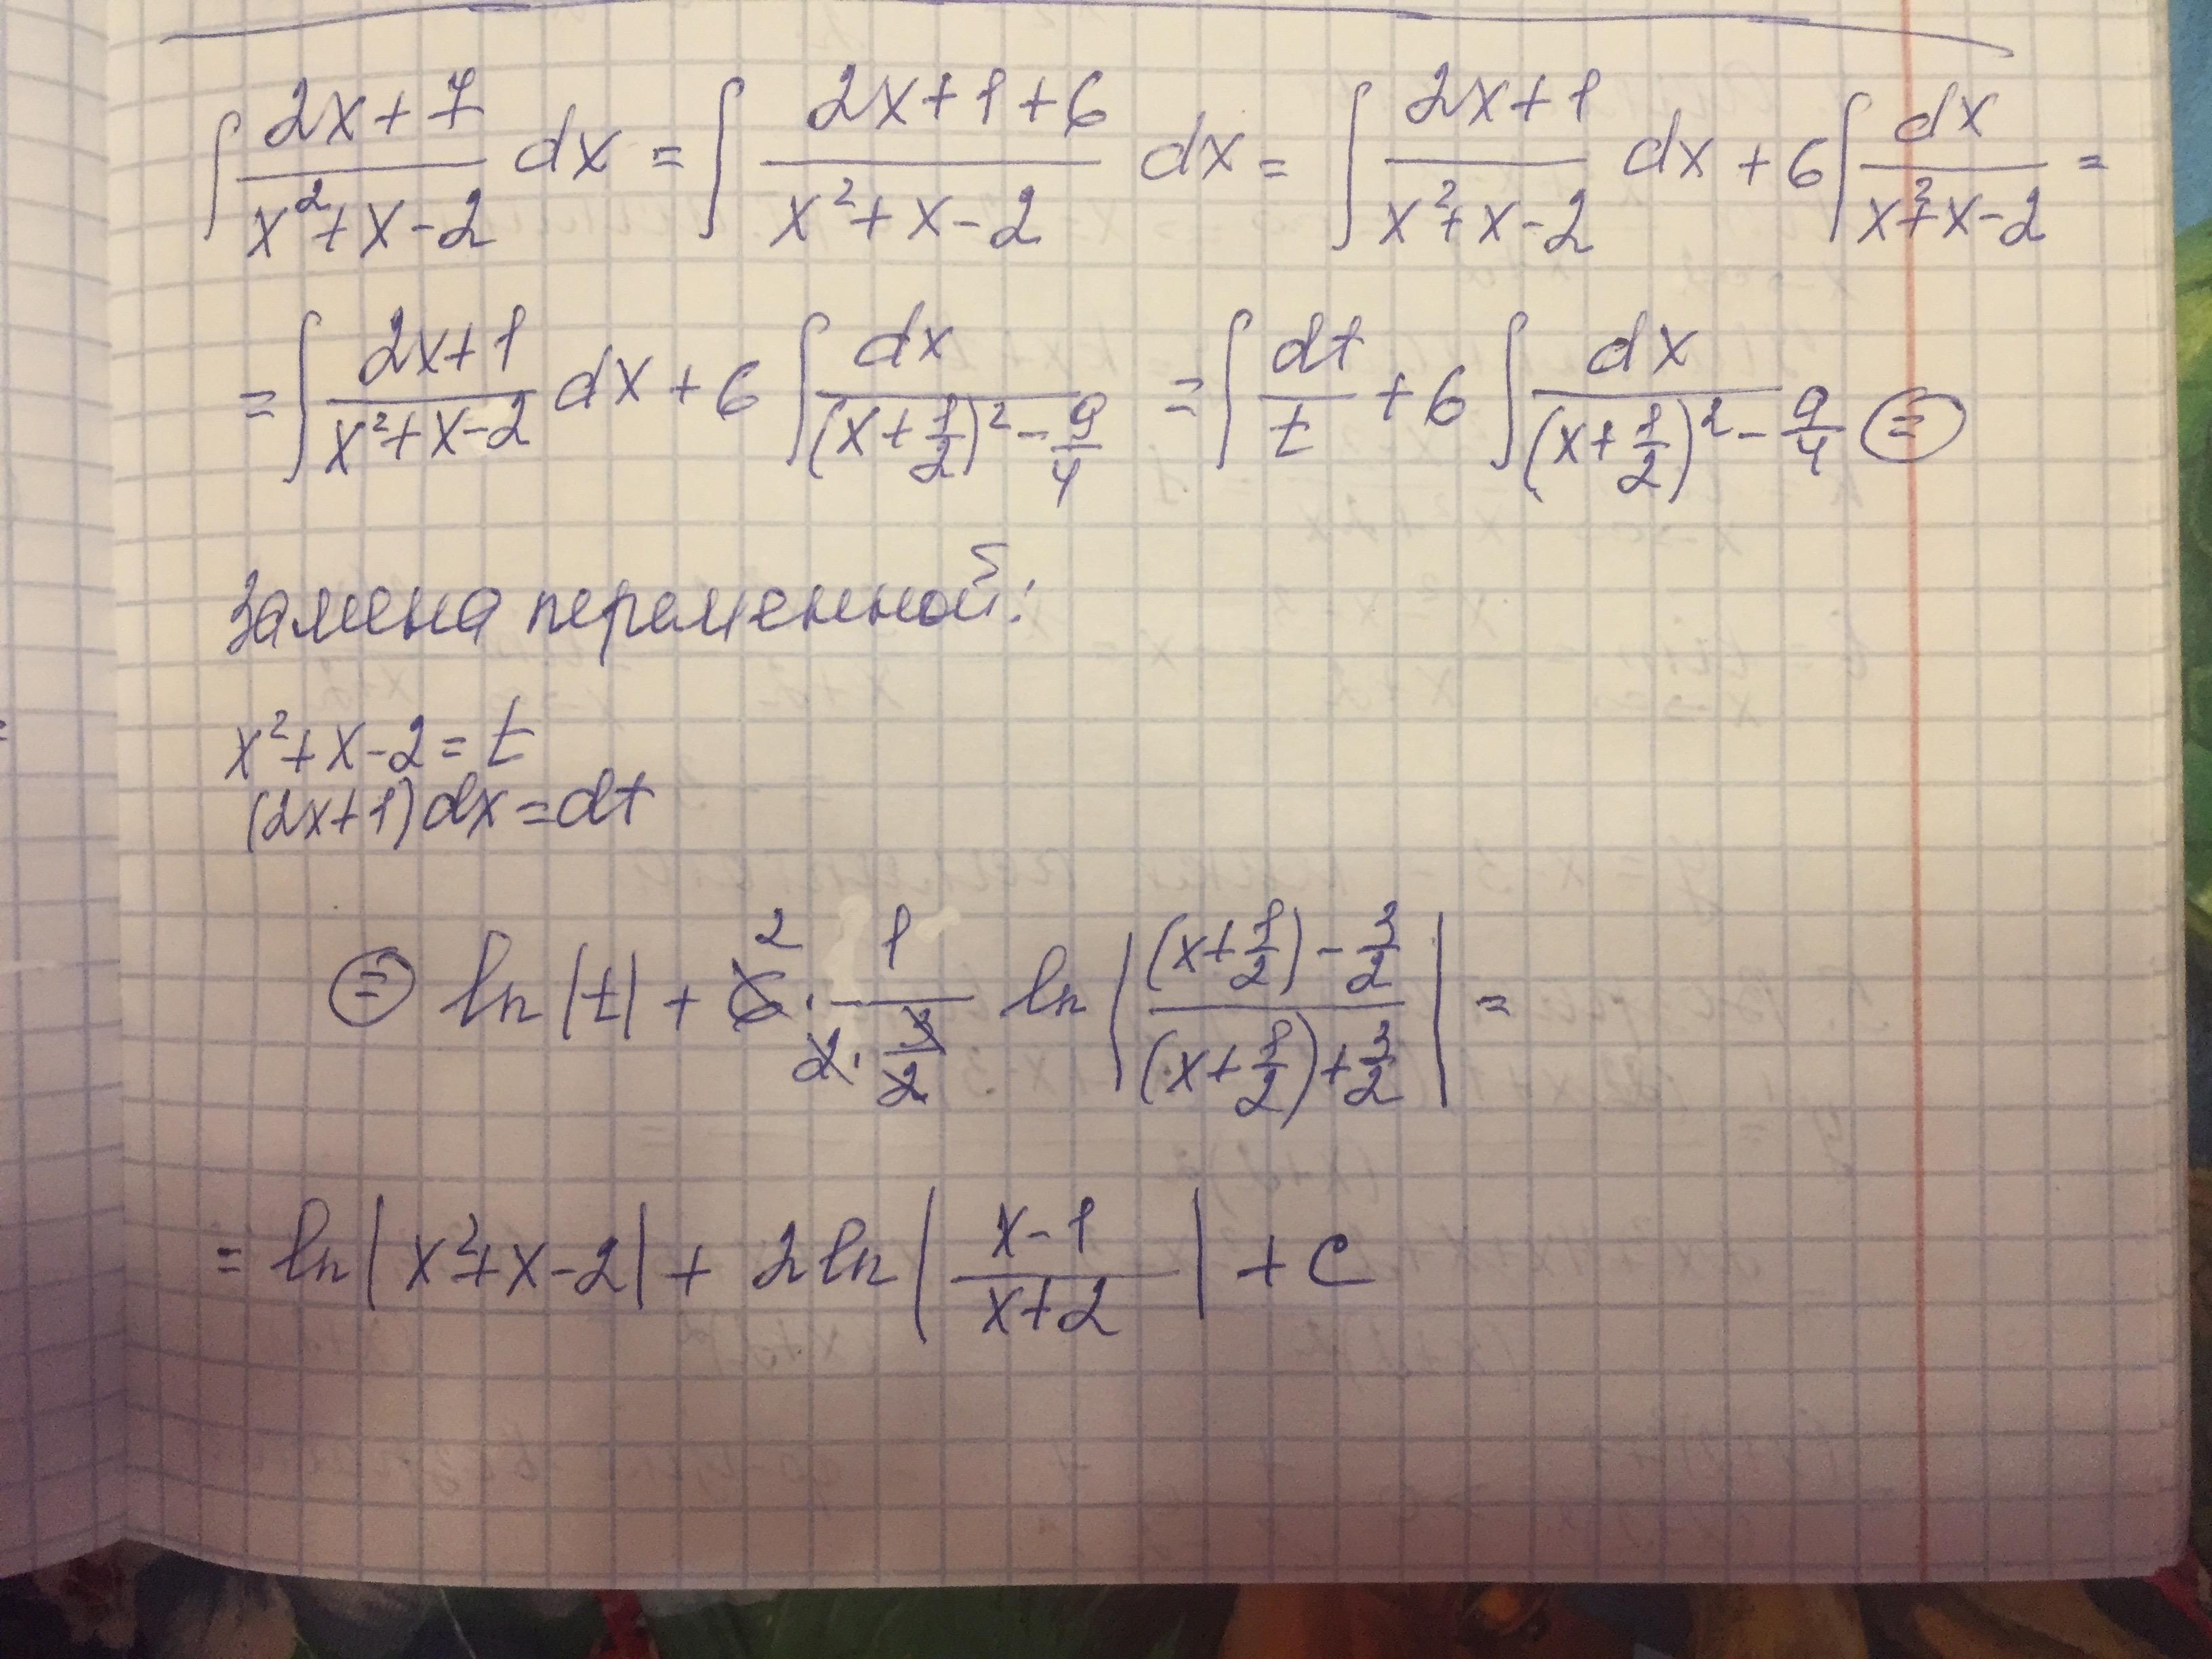 ∫ (2x+7)/(x²+x-2) dx = ∫ (2x+1+6)/(x²+x-2) dx = ∫ (2x+1)/(x²+x-2) dx + 6∫ dx/(x²+x-2) =
= ∫ (2x+1)/(x²+x-2) dx + 6 ∫ dx/((x+1/2)² - 9/4) = ∫ dt/t + 6 ∫ dx/((x+1/2)² - 9/4) ⊜
Замена переменной:
x²+x-2 = t
(2x+1)dx = dt
⊜ ln|t| + 6̸ ² · 1/(2̸ · 3̸/2̸) ln |((x+1/2) - 3/2)/((x+1/2) + 3/2)| =
= ln|x²+x-2| + 2 ln |(x-1)/(x+2)| + C